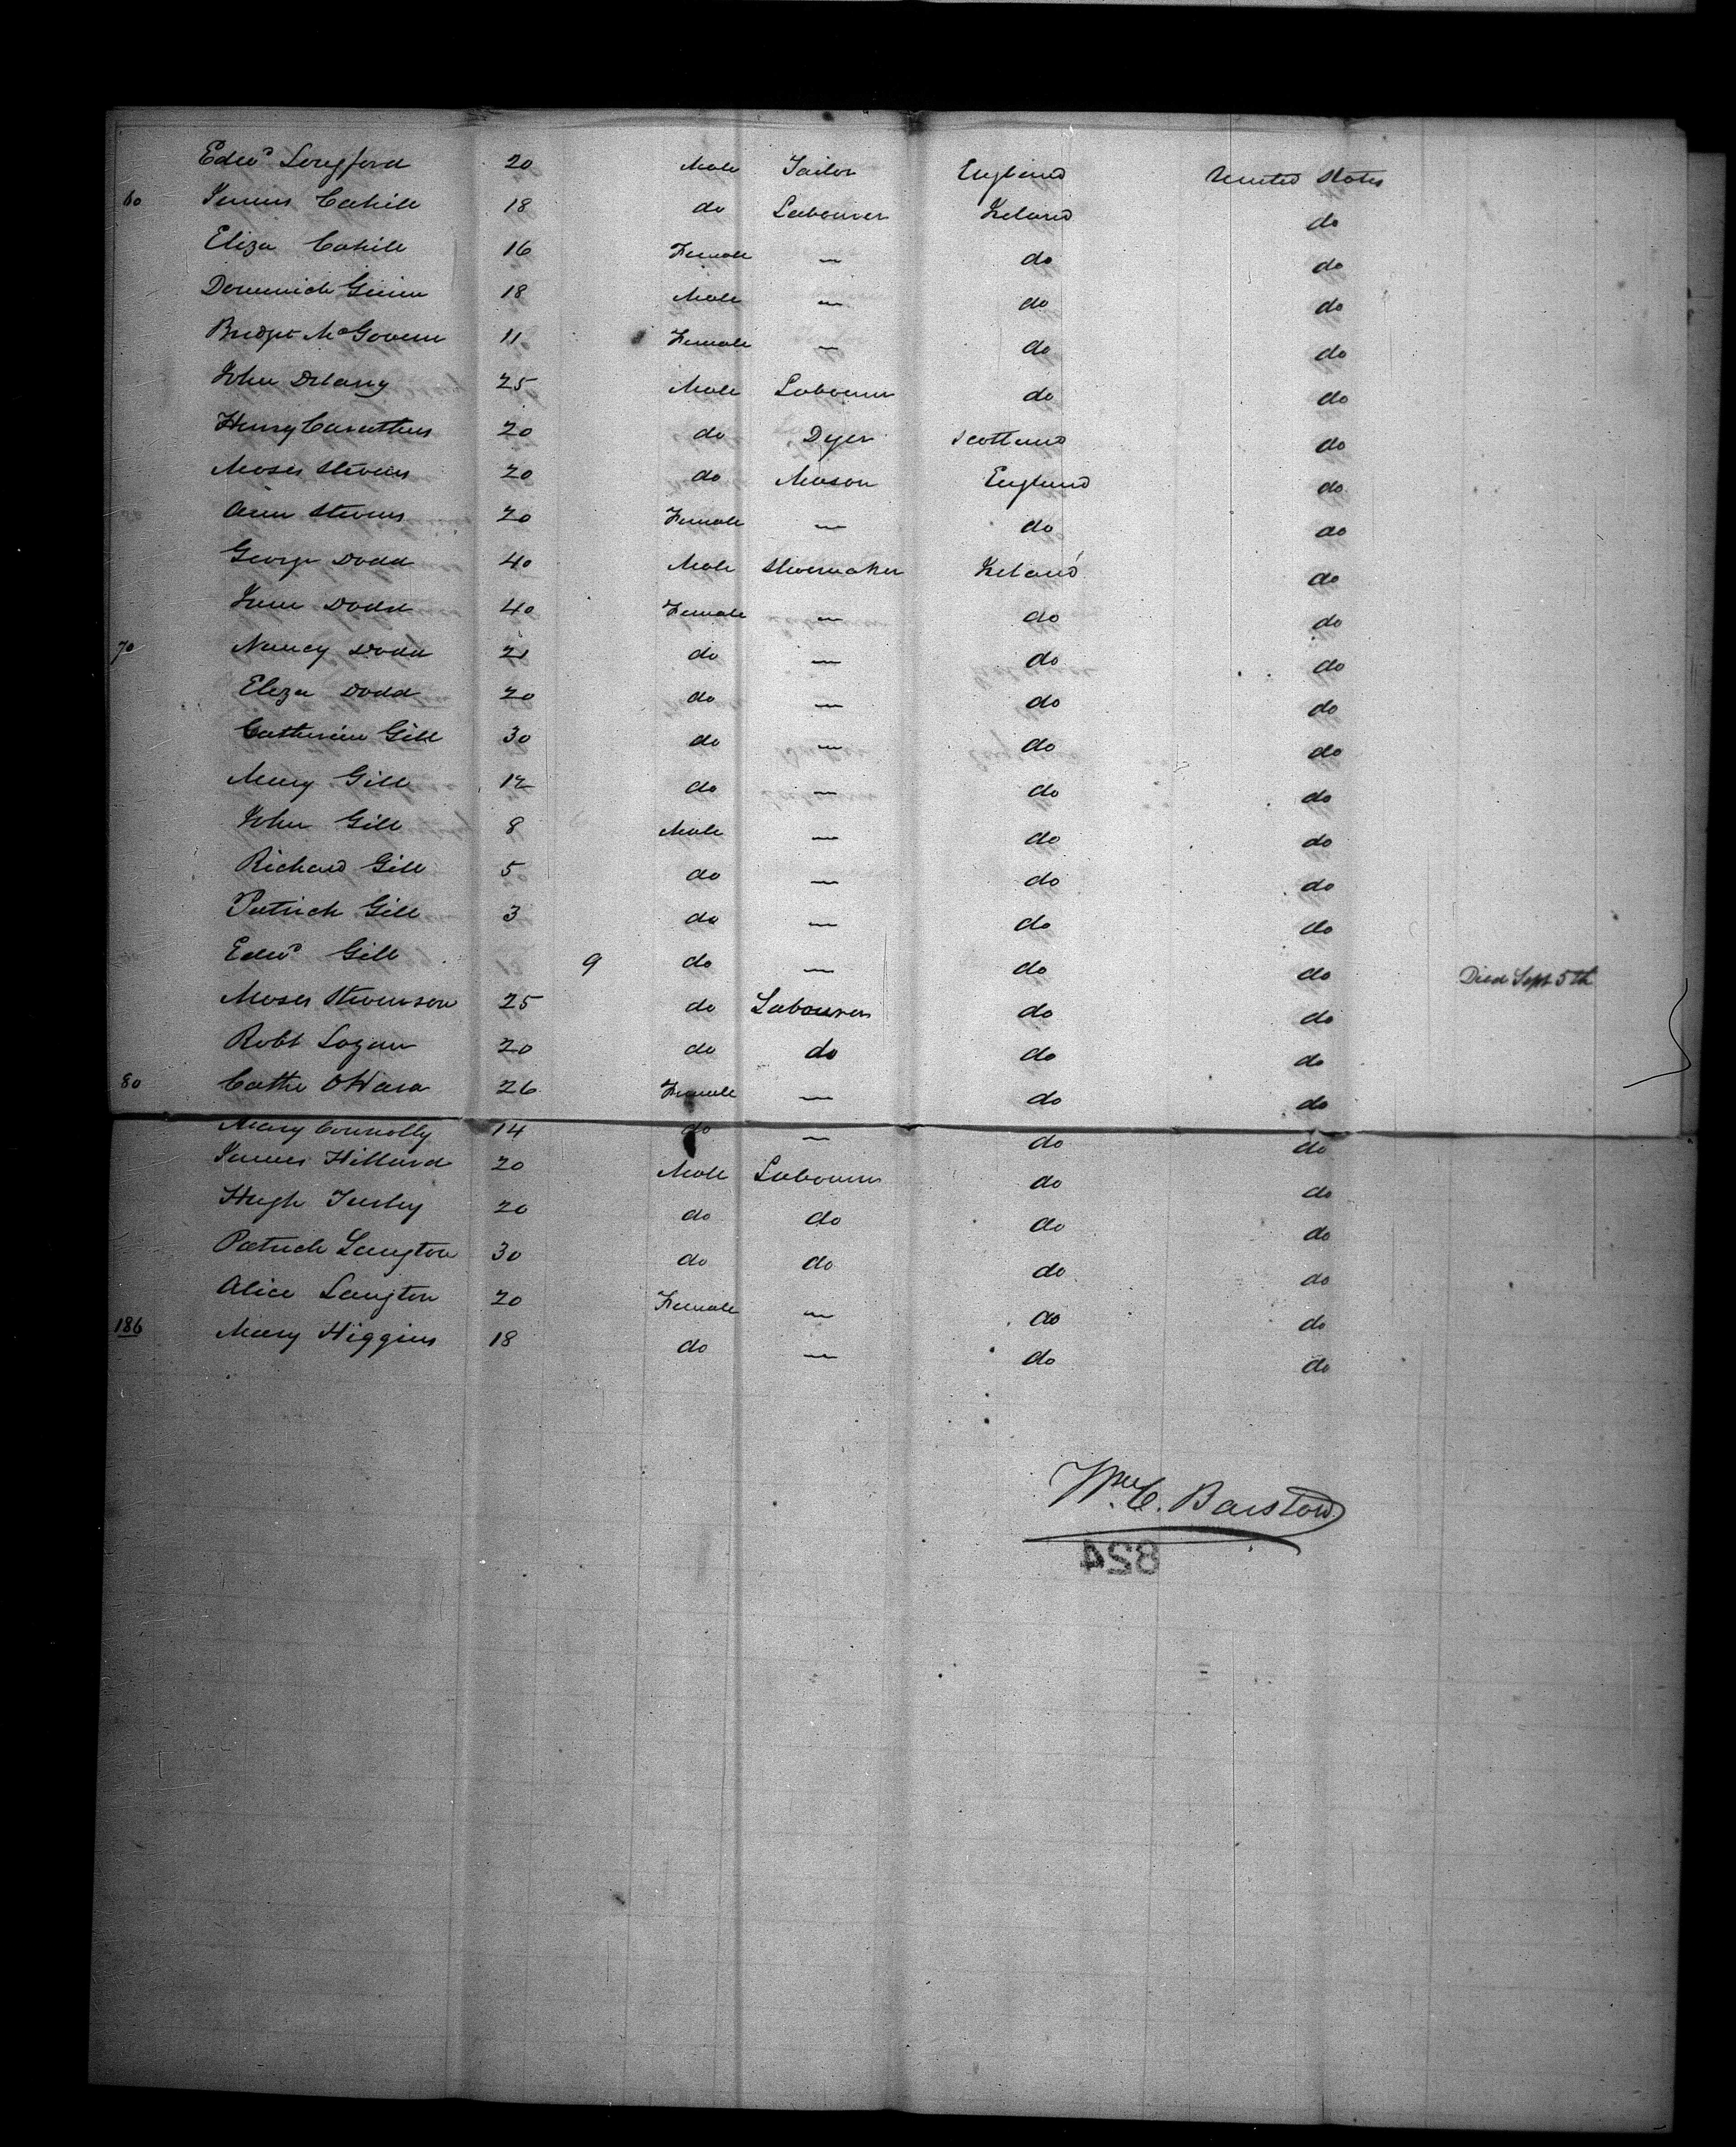 Edwd Longford 20 Male Tailor England United States
60 James Cahill 18 do Labourer Ireland do
Eliza Cahill 16 Female — do do
Dominick 18 Male — do do
Bridget McGovern 11 Female — do do
John Delany 25 Male Labourer do do
Henry Caruthers 20 do Dyer Scotland do
Moses Stevens 20 do Mason England do
Ann Stevens 20 Female — do do
George Dodd 40 Male Shoemaker Ireland do
Jane Dodd 40 Female — do do
70 Nancy Dodd 21 do — do do
Eliza Dodd 20 do — do do
Catherine Gill 30 do — do do
Mary Gill 12 do — do do
John Gill 8 Male — do do
Richard Gill 5 do — do do
Patrick Gill 3 do — do do
Edwd Gill 9 do — do do Died Sept 5th
Moses Stevenson 25 do Labourer do do
Robt Logan 20 do do do do
80 Cathe OHara 26 Female — do do
Mary Connolly 14 do — do do
James Hilland 20 Male Labourer do do
Hugh 20 do do do do
Patrick Langton 30 do do do do
Alice Langton 20 Female — do do
186 Mary Higgins 18 do — do do
Wm C. Barstow
824